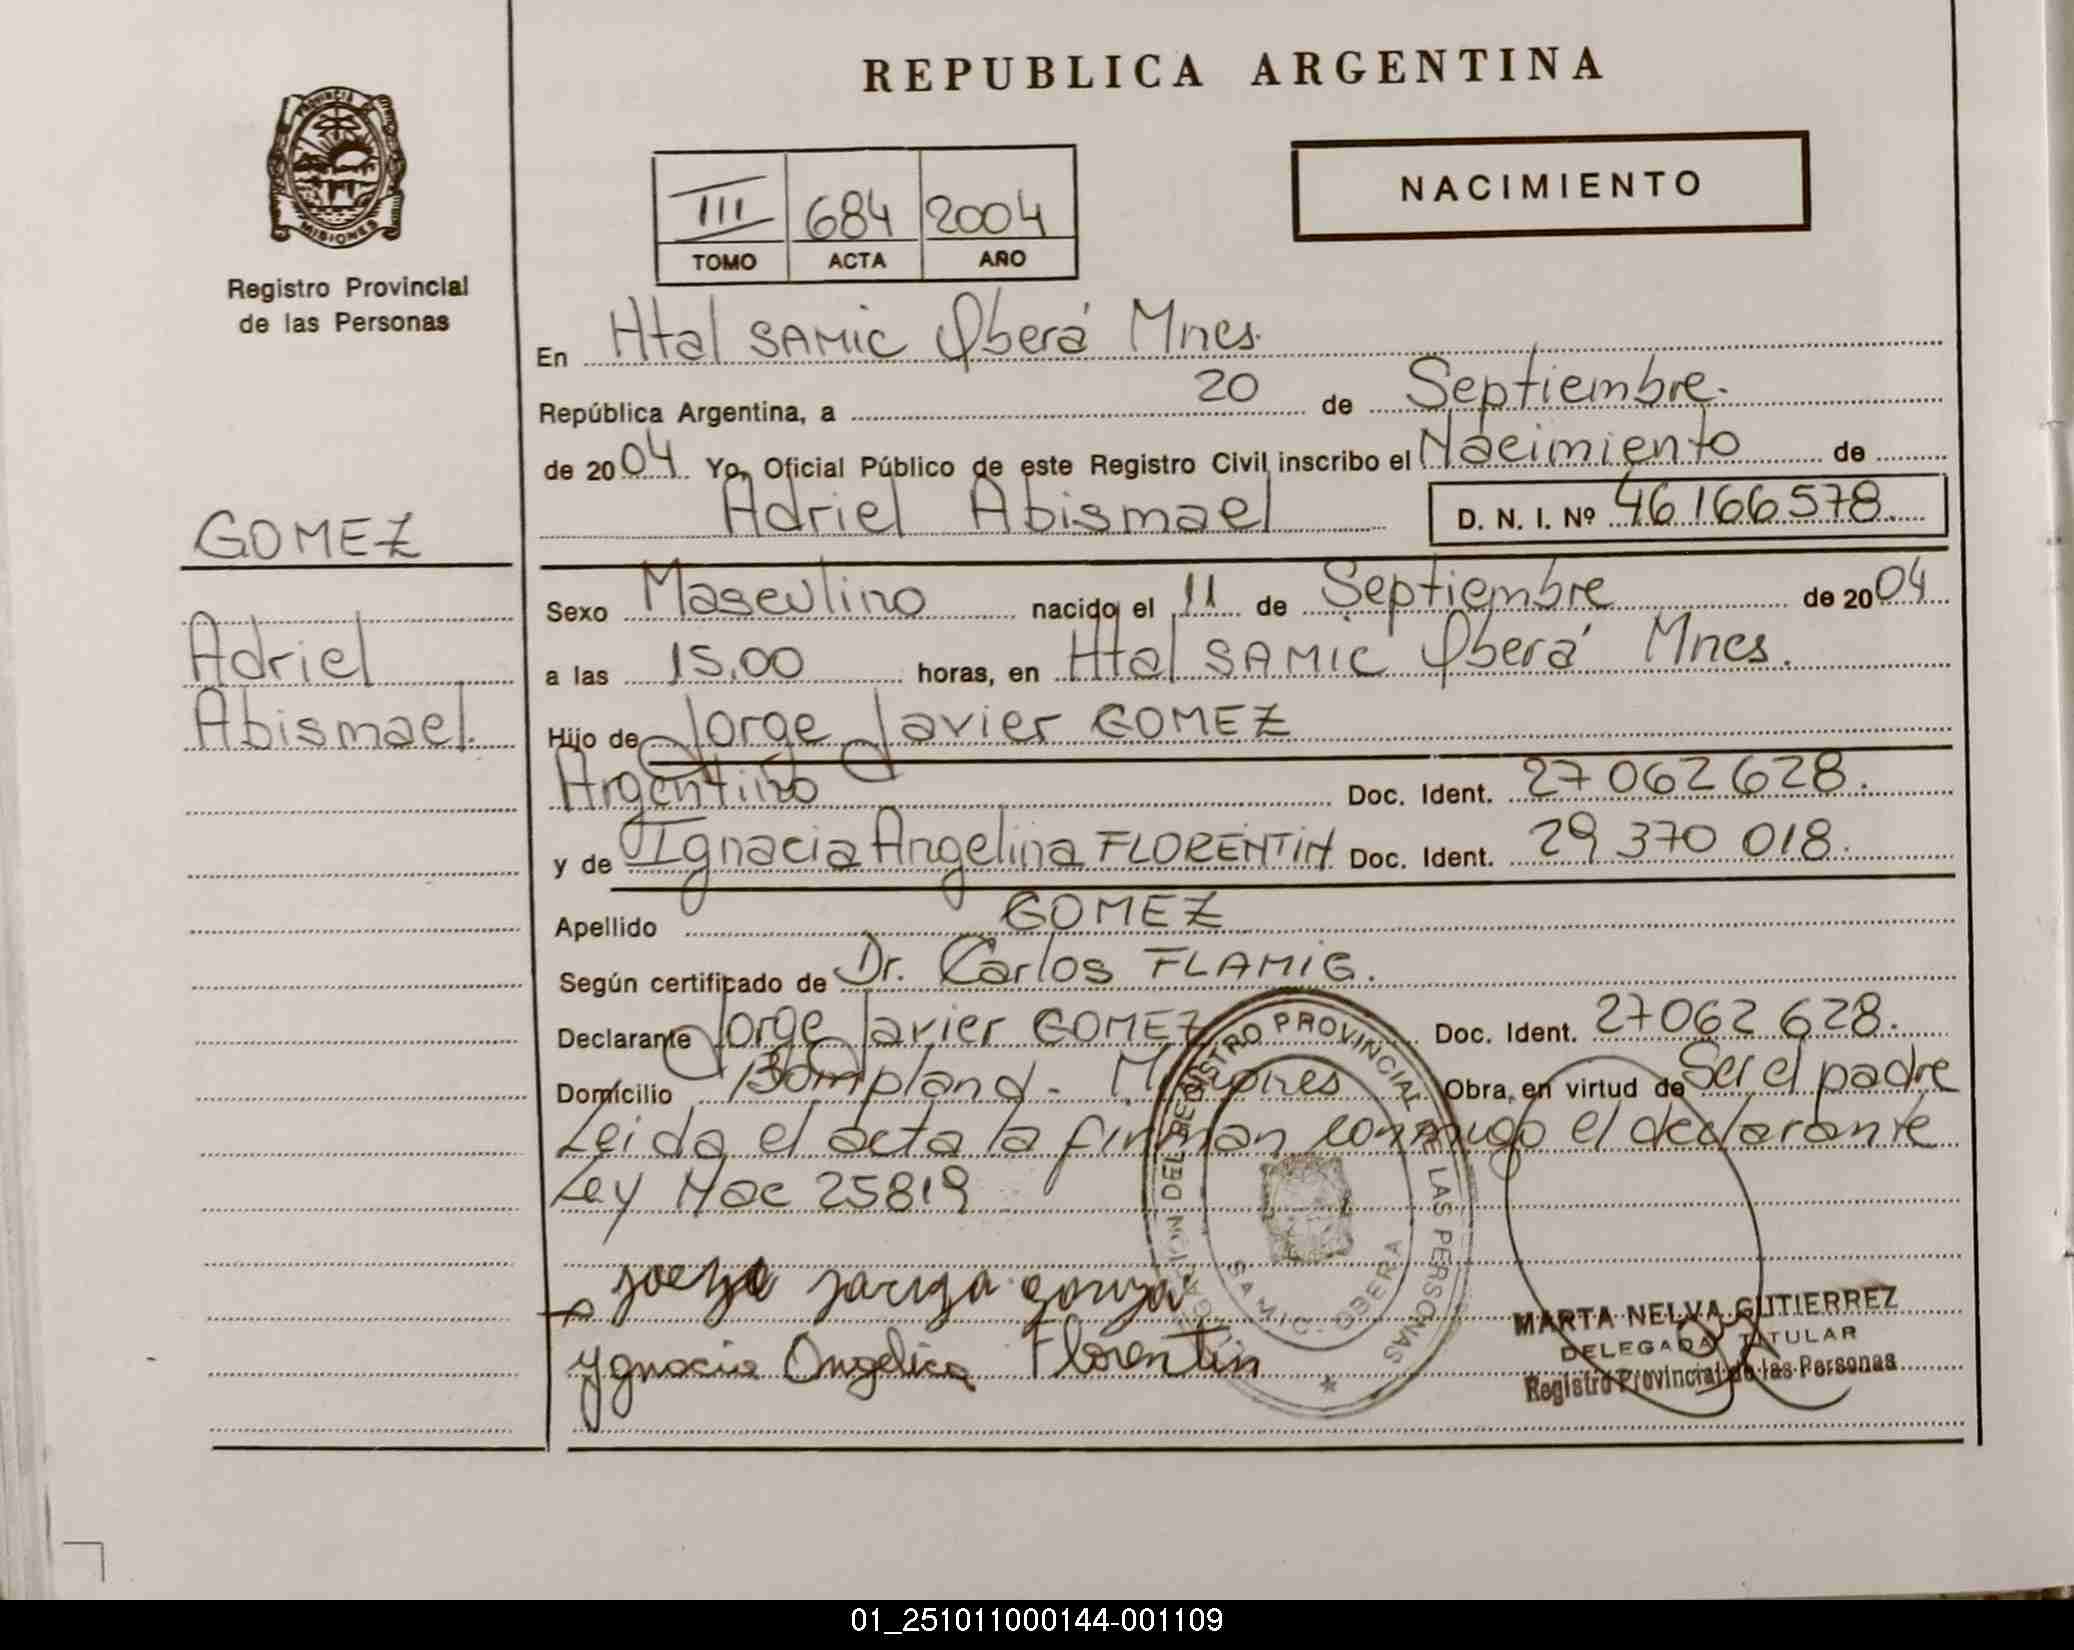 REPUBLICA ARGENTINA
PROVINCIA
MISIONES
Registro Provincial
de las Personas
III 684 2004
TOMO ACTA AÑO
NACIMIENTO
En Htal SAMIC Oberá Mnes.
República Argentina, a 20 de Septiembre.
de 2004 Yo, Oficial Público de este Registro Civil inscribo el Nacimiento de
Adriel Abismael D. N. I. Nº 46 166 578.
GOMEZ
Adriel
Abismael.
Sexo Masculino nacido el 11 de Septiembre de 2004
a las 15,00 horas, en Htal SAMIC Oberá Mnes.
Hijo de Jorge Javier GOMEZ
Argentino Doc. Ident. 27 062 628.
y de Ignacia Angelina FLORENTIN Doc. Ident. 29 370 018.
Apellido GOMEZ
Según certificado de Dr. Carlos FLAMIG.
Declarante Jorge Javier GOMEZ Doc. Ident. 27062 628.
Domicilio Bompland - Misiones Obra, en virtud de Ser el padre
Leida el acta la firman conmigo el declarante
Ley Nac 25819
Ygnacia Angelica Florentin
DEL REGISTRO PROVINCIAL DE LAS PERSONAS
SAMIC - OBERA
MARTA NELVA GUTIERREZ
DELEGADA TITULAR
Registro Provincial de las Personas
01_251011000144-001109